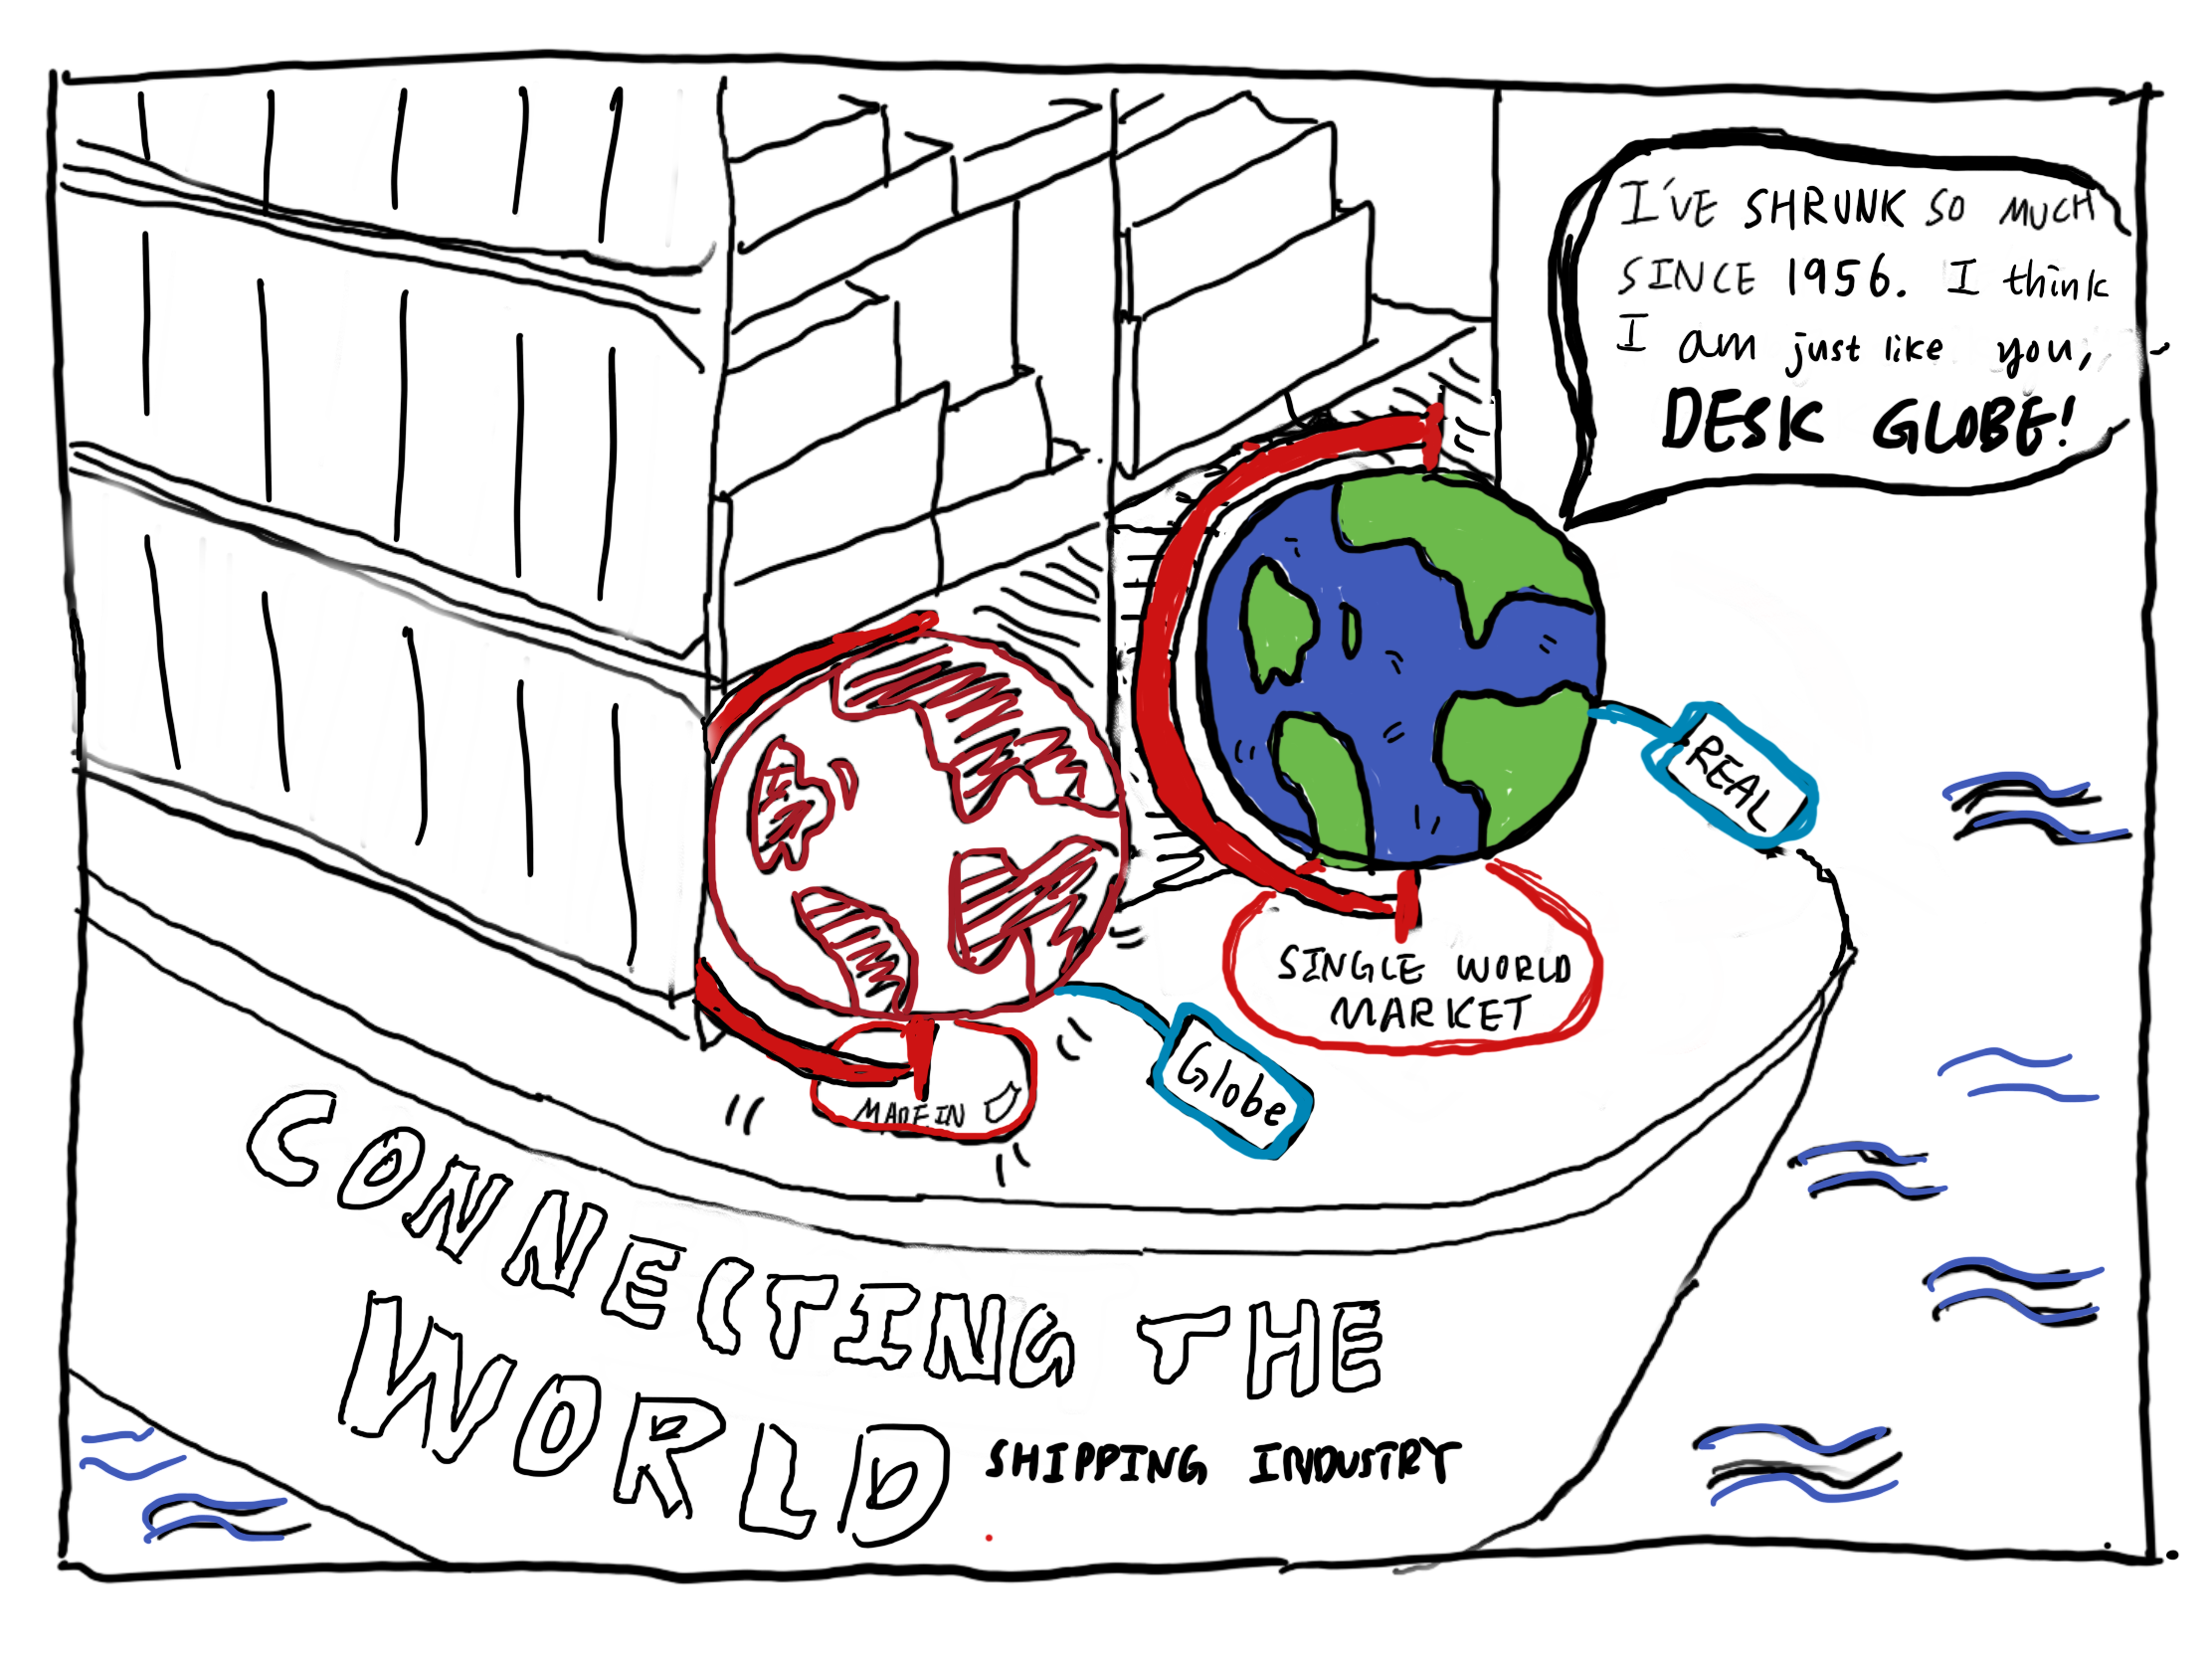 I'VE SHRUNK SO MUCH
SINCE 1956. I think
I am just like you,
DESK GLOBE!
REAL
SINGLE WORLD
MARKET
Globe
MADE IN
CONNECTING THE
WORLD SHIPPING INDUSTRY